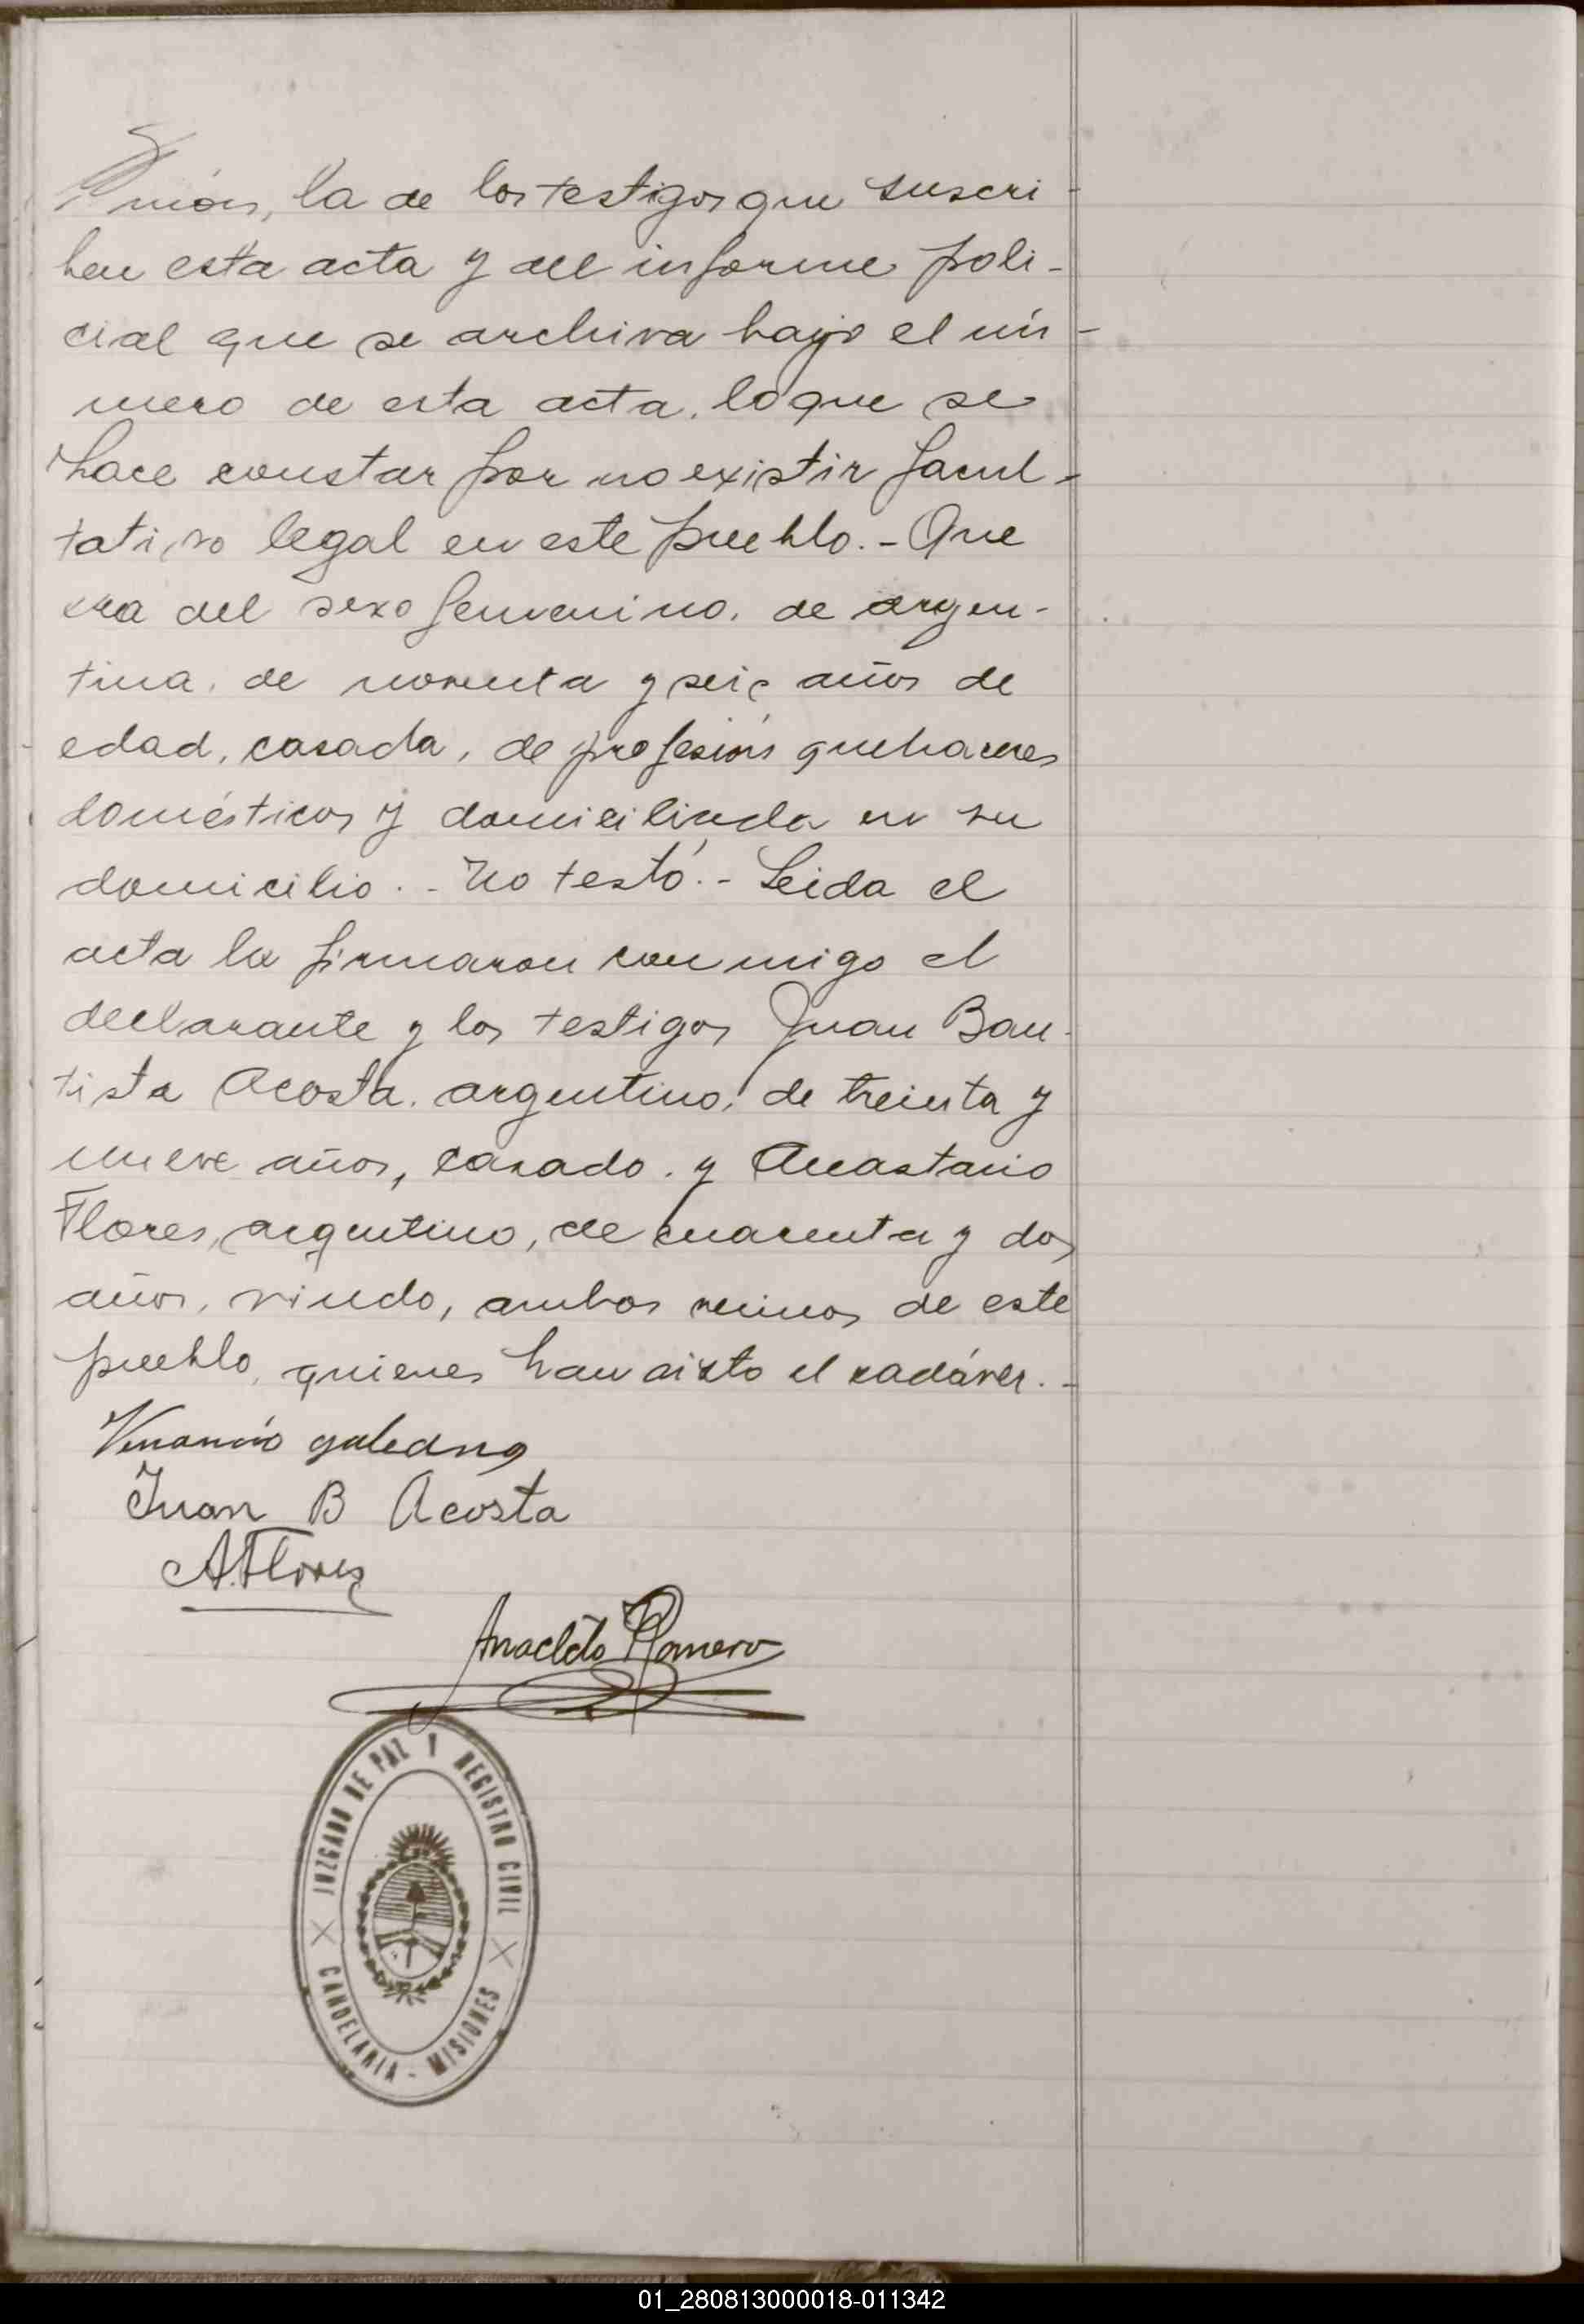 nión, la de los testigos que suscri-
ben esta acta y del informe poli-
cial que se archiva bajo el nú-
mero de esta acta, lo que se
hace constar por no existir facul-
tativo legal en este pueblo.- Que
era del sexo femenino, de argen-
tina, de noventa y seis años de
edad, casada, de profesión quehaceres
domésticos y domiciliada en su
domicilio.- No testó.- Leida el
acta la firmaron conmigo el
declarante y los testigos Juan Bau-
tista Acosta, argentino, de treinta y
nueve años, casado, y Anastacio
Flores, argentino, de cuarenta y dos
años, viudo, ambos vecinos de este
pueblo, quienes han visto el cadáver.-
Venancio galeano
Juan B Acosta
A. Flores
Anacleto Romero
JUZGADO DE PAZ Y REGISTRO CIVIL
CANDELARIA - MISIONES
01_280813000018-011342